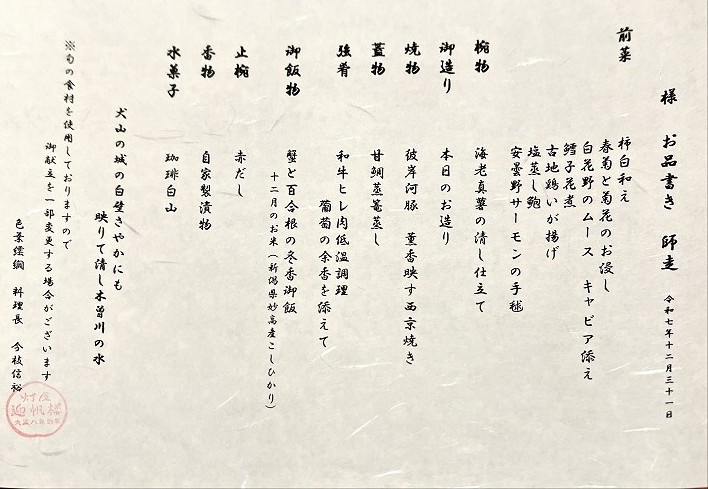 様 お品書き 師走 令和七年十二月三十一日
前菜
柿白和え
春菊と菊花のお浸し
白花野のムース キャビア添え
鱈子花煮
古地鶏いが揚げ
塩蒸し鮑
安曇野サーモンの手毬
椀物 海老真薯の清し仕立て
御造り 本日のお造り
焼物 彼岸河豚 薫香映す西京焼き
蓋物 甘鯛蒸篭蒸し
強肴 和牛ヒレ肉低温調理
葡萄の余香を添えて
御飯物 蟹と百合根の冬香御飯
十二月のお米(新潟県妙高産こしひかり)
止椀 赤だし
香物 自家製漬物
水菓子 珈琲白山
犬山の城の白壁さやかにも
映りて清し木曽川の水
※旬の食材を使用しておりますので
御献立を一部変更する場合がございます
色葉繧繝 料理長 今枝信裕
灯屋
迎帆楼